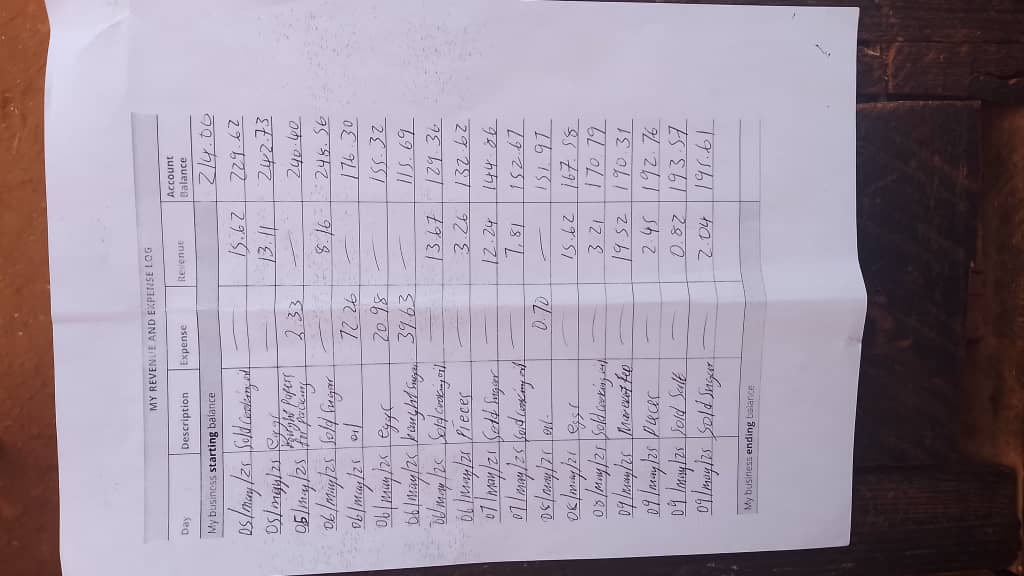 MY REVENUE AND EXPENSE LOG
Day Description Expense Revenue Account Balance
My business starting balance 214.00
05/may/25 Sold cooking oil — 15.62 229.62
05/may/25 — 13.11 242.73
05/may/25 bought Papers 2.33 — 240.40
06/may/25 Sold Sugar — 8.16 248.56
06/may/25 oil 72.26 — 176.30
06/may/25 eggs 20.98 — 155.32
06/may/25 39.63 — 115.69
06/may/25 Sold cooking oil — 13.67 129.36
06/may/25 Pieces — 3.26 132.62
07/may/25 Sold Sugar — 12.24 144.86
07/may/25 Sold cooking oil — 7.81 152.67
08/may/25 oil 0.70 — 151.97
08/may/25 eggs — 15.62 167.58
08/may/25 Sold cooking oil — 3.21 170.79
09/may/25 — 19.52 190.31
09/may/25 Pieces — 2.45 192.76
09/may/25 Sold Salt — 0.82 193.57
09/may/25 Sold Sugar — 2.04 195.61
My business ending balance